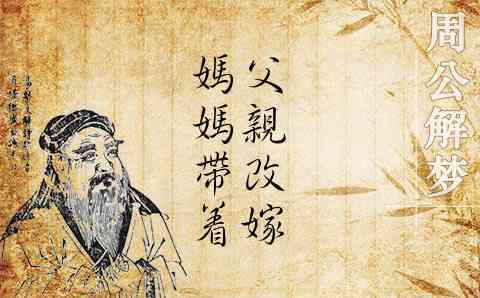 周公解梦
父親改嫁
媽媽帶着